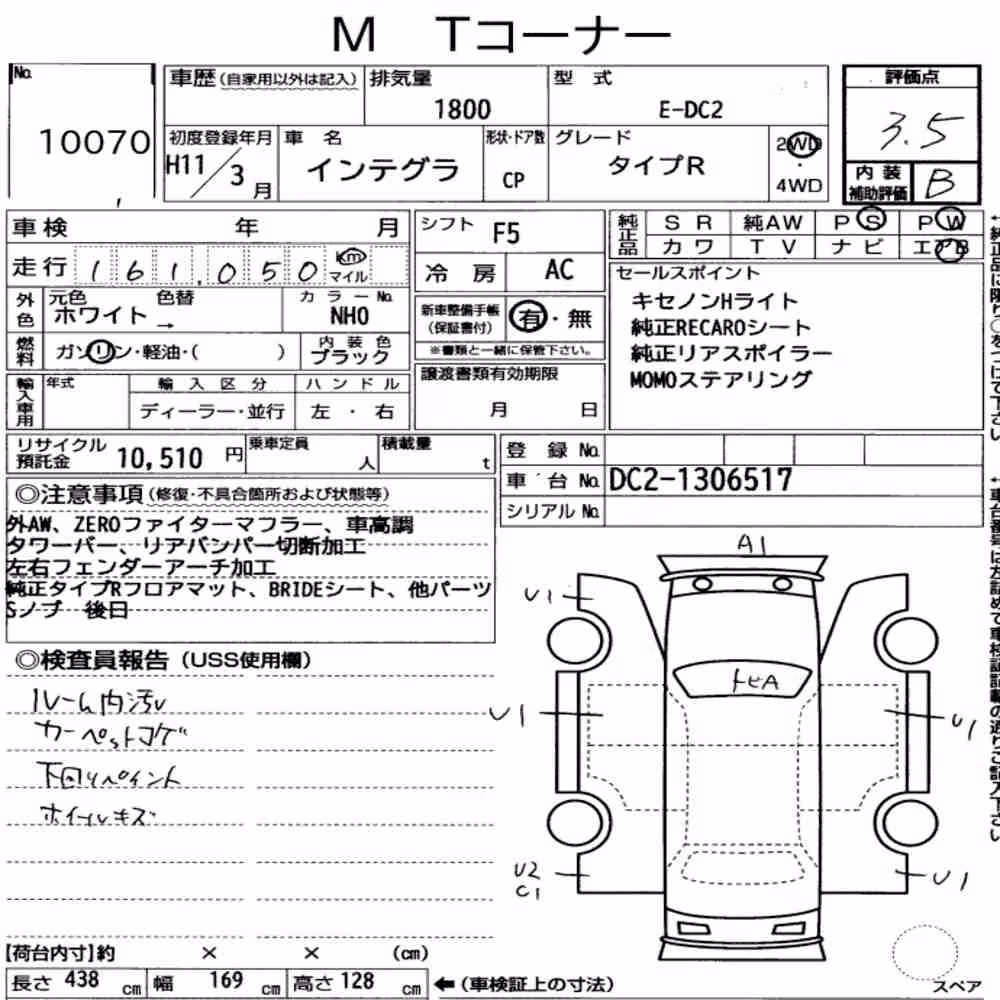 M Tコーナー
No.
10070
車歴(自家用以外は記入)
排気量
1800
型 式
E-DC2
評価点
3.5
初度登録年月
H11/3月
車 名
インテグラ
形状・ドア数
CP
グレード
タイプR
2WD
・
4WD
内 装
補助評価
B
車検 年 月
走行 161,050 km
マイル
シフト F5
冷 房 AC
純正品
SR 純AW PS PW
カワ TV ナビ エアB
外色
元色 色替
ホワイト →
カラーNo.
NH0
新車整備手帳
(保証書付)
有・無
※書類と一緒に保管下さい。
セールスポイント
キセノンHライト
純正RECAROシート
純正リアスポイラー
MOMOステアリング
燃料
ガソリン・軽油・( )
内 装 色
ブラック
譲渡書類有効期限
月 日
輸入車用
年式
輸 入 区 分
ディーラー・並行
ハ ン ド ル
左 ・ 右
リサイクル
預託金
10,510 円
乗車定員
人
積載量
t
登 録 No.
車 台 No. DC2-1306517
シリアル No.
◎注意事項(修復・不具合箇所および状態等)
外AW、ZEROファイターマフラー、車高調
タワーバー、リアバンパー切断加工
左右フェンダーアーチ加工
純正タイプRフロアマット、BRIDEシート、他パーツ
Sノブ 後日
◎検査員報告(USS使用欄)
ルーム内汚れ
カーペットコゲ
下回りペイント
ホイールキズ
A1
U1
トビA
U1
U1
U2
C1
U1
【荷台内寸】約 × × (cm)
長さ 438 cm 幅 169 cm 高さ 128 cm
←(車検証上の寸法)
スペア